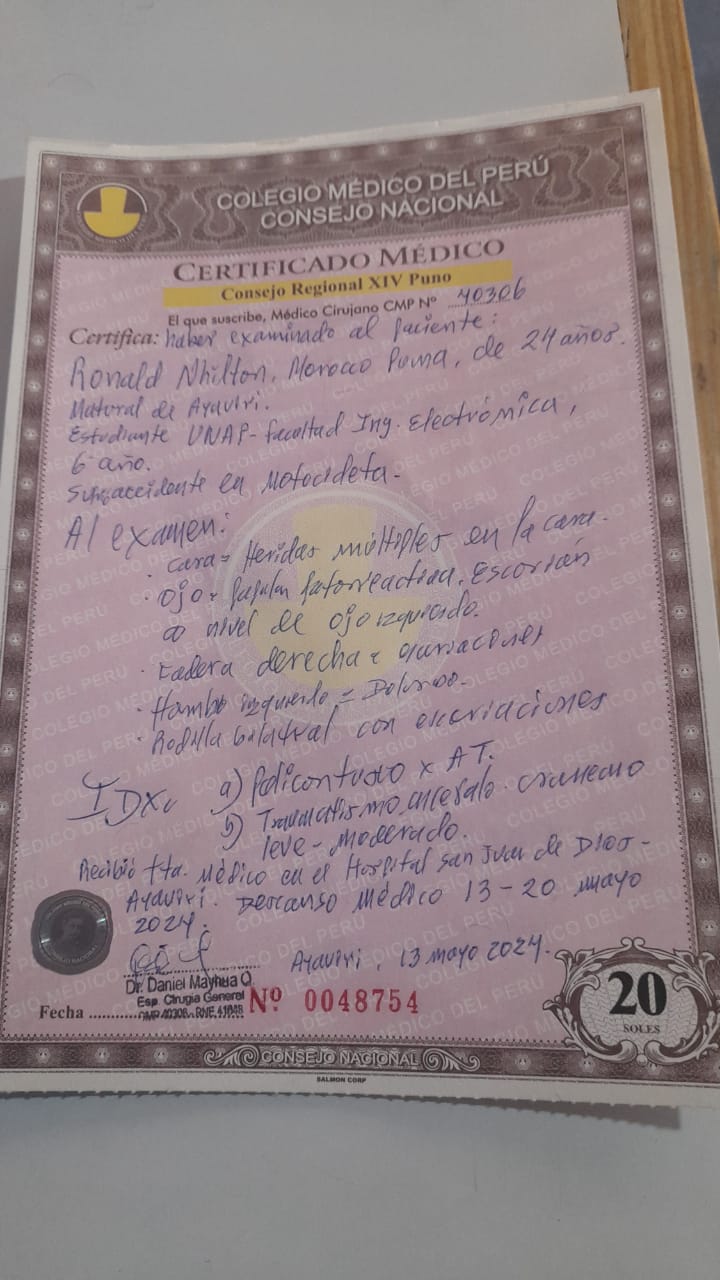 COLEGIO MÉDICO DEL PERÚ
CONSEJO NACIONAL
CERTIFICADO MÉDICO
Consejo Regional XIV Puno
El que suscribe, Médico Cirujano CMP Nº 40306
Certifica: haber examinado al paciente:
Ronald Nhilton, Morocco Puma, de 24 años.
Natural de Ayaviri.
Estudiante UNAP - Facultad Ing. Electrónica,
6 año.
accidente en Motocicleta -
Al examen:
· Cara = Heridas múltiples en la cara.
· Ojo =
a nivel de ojo izquierdo.
· Cadera derecha =
· Hombro izquierdo = Doloroso.
· Rodilla bilateral con excoriaciones
IDX: a) Policontuso x AT.
b) Traumatismo encefalo-craneano
leve - Moderado.
Recibió tto. Médico en el Hospital San Juan de Dios -
Ayaviri. Descanso Médico 13 - 20 mayo
2024.
Ayaviri, 13 mayo 2024.
Dr. Daniel Mayhua Q.
Esp. Cirugía General
CMP 40306 - RNE
Fecha
Nº 0048754
20
SOLES
CONSEJO NACIONAL
SALMON CORP